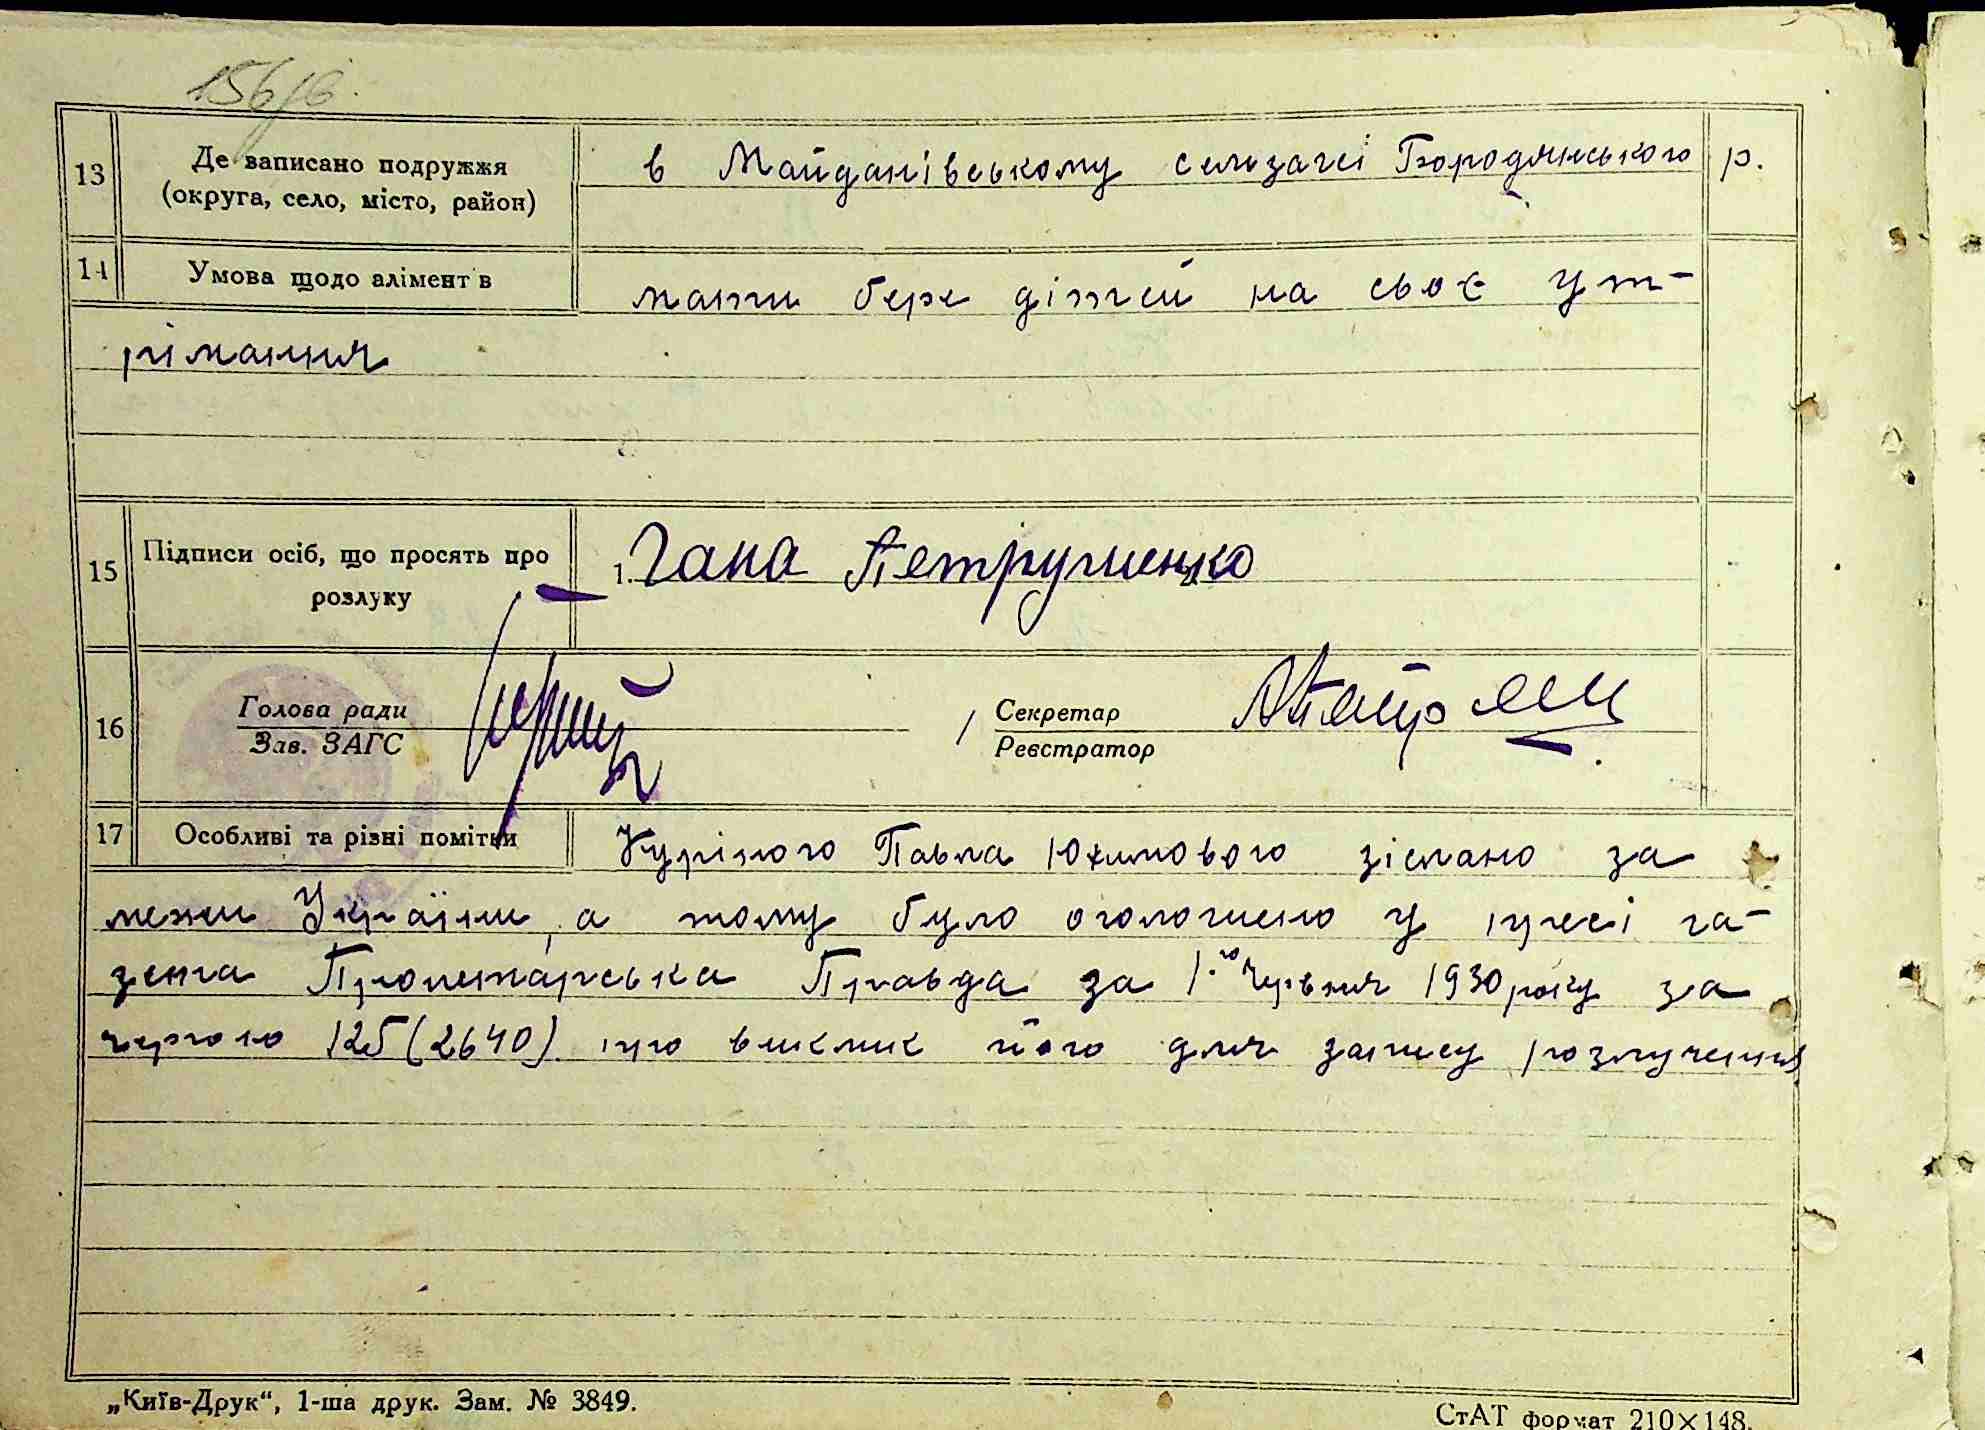 13 Де записано подружжя в Майданівському сельзагсі Бородянського р.
(округа, село, місто, район)
14 Умова щодо алімент в мати бере дітей на своє ут-
рімання
15 Підписи осіб, що просять про 1. Гана Петрушенко
розлуку
16 Голова ради Секретар
Зав. ЗАГС Реєстратор
17 Особливі та різні помітки Куріного Павла Юхимового зіслано за
межи України, а тому було оголошено у пресі га-
зета Пролетарська Правда за 1.го Червня 1930 року за
чергою 125 (2640) про виклик його для запису розлучення
„Київ-Друк“, 1-ша друк. Зам. № 3849.
СтАТ формат 210×148.